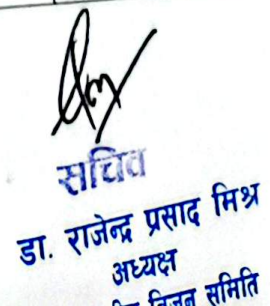 सचिव
डा. राजेन्द्र प्रसाद मिश्र
अध्यक्ष
विजन समिति